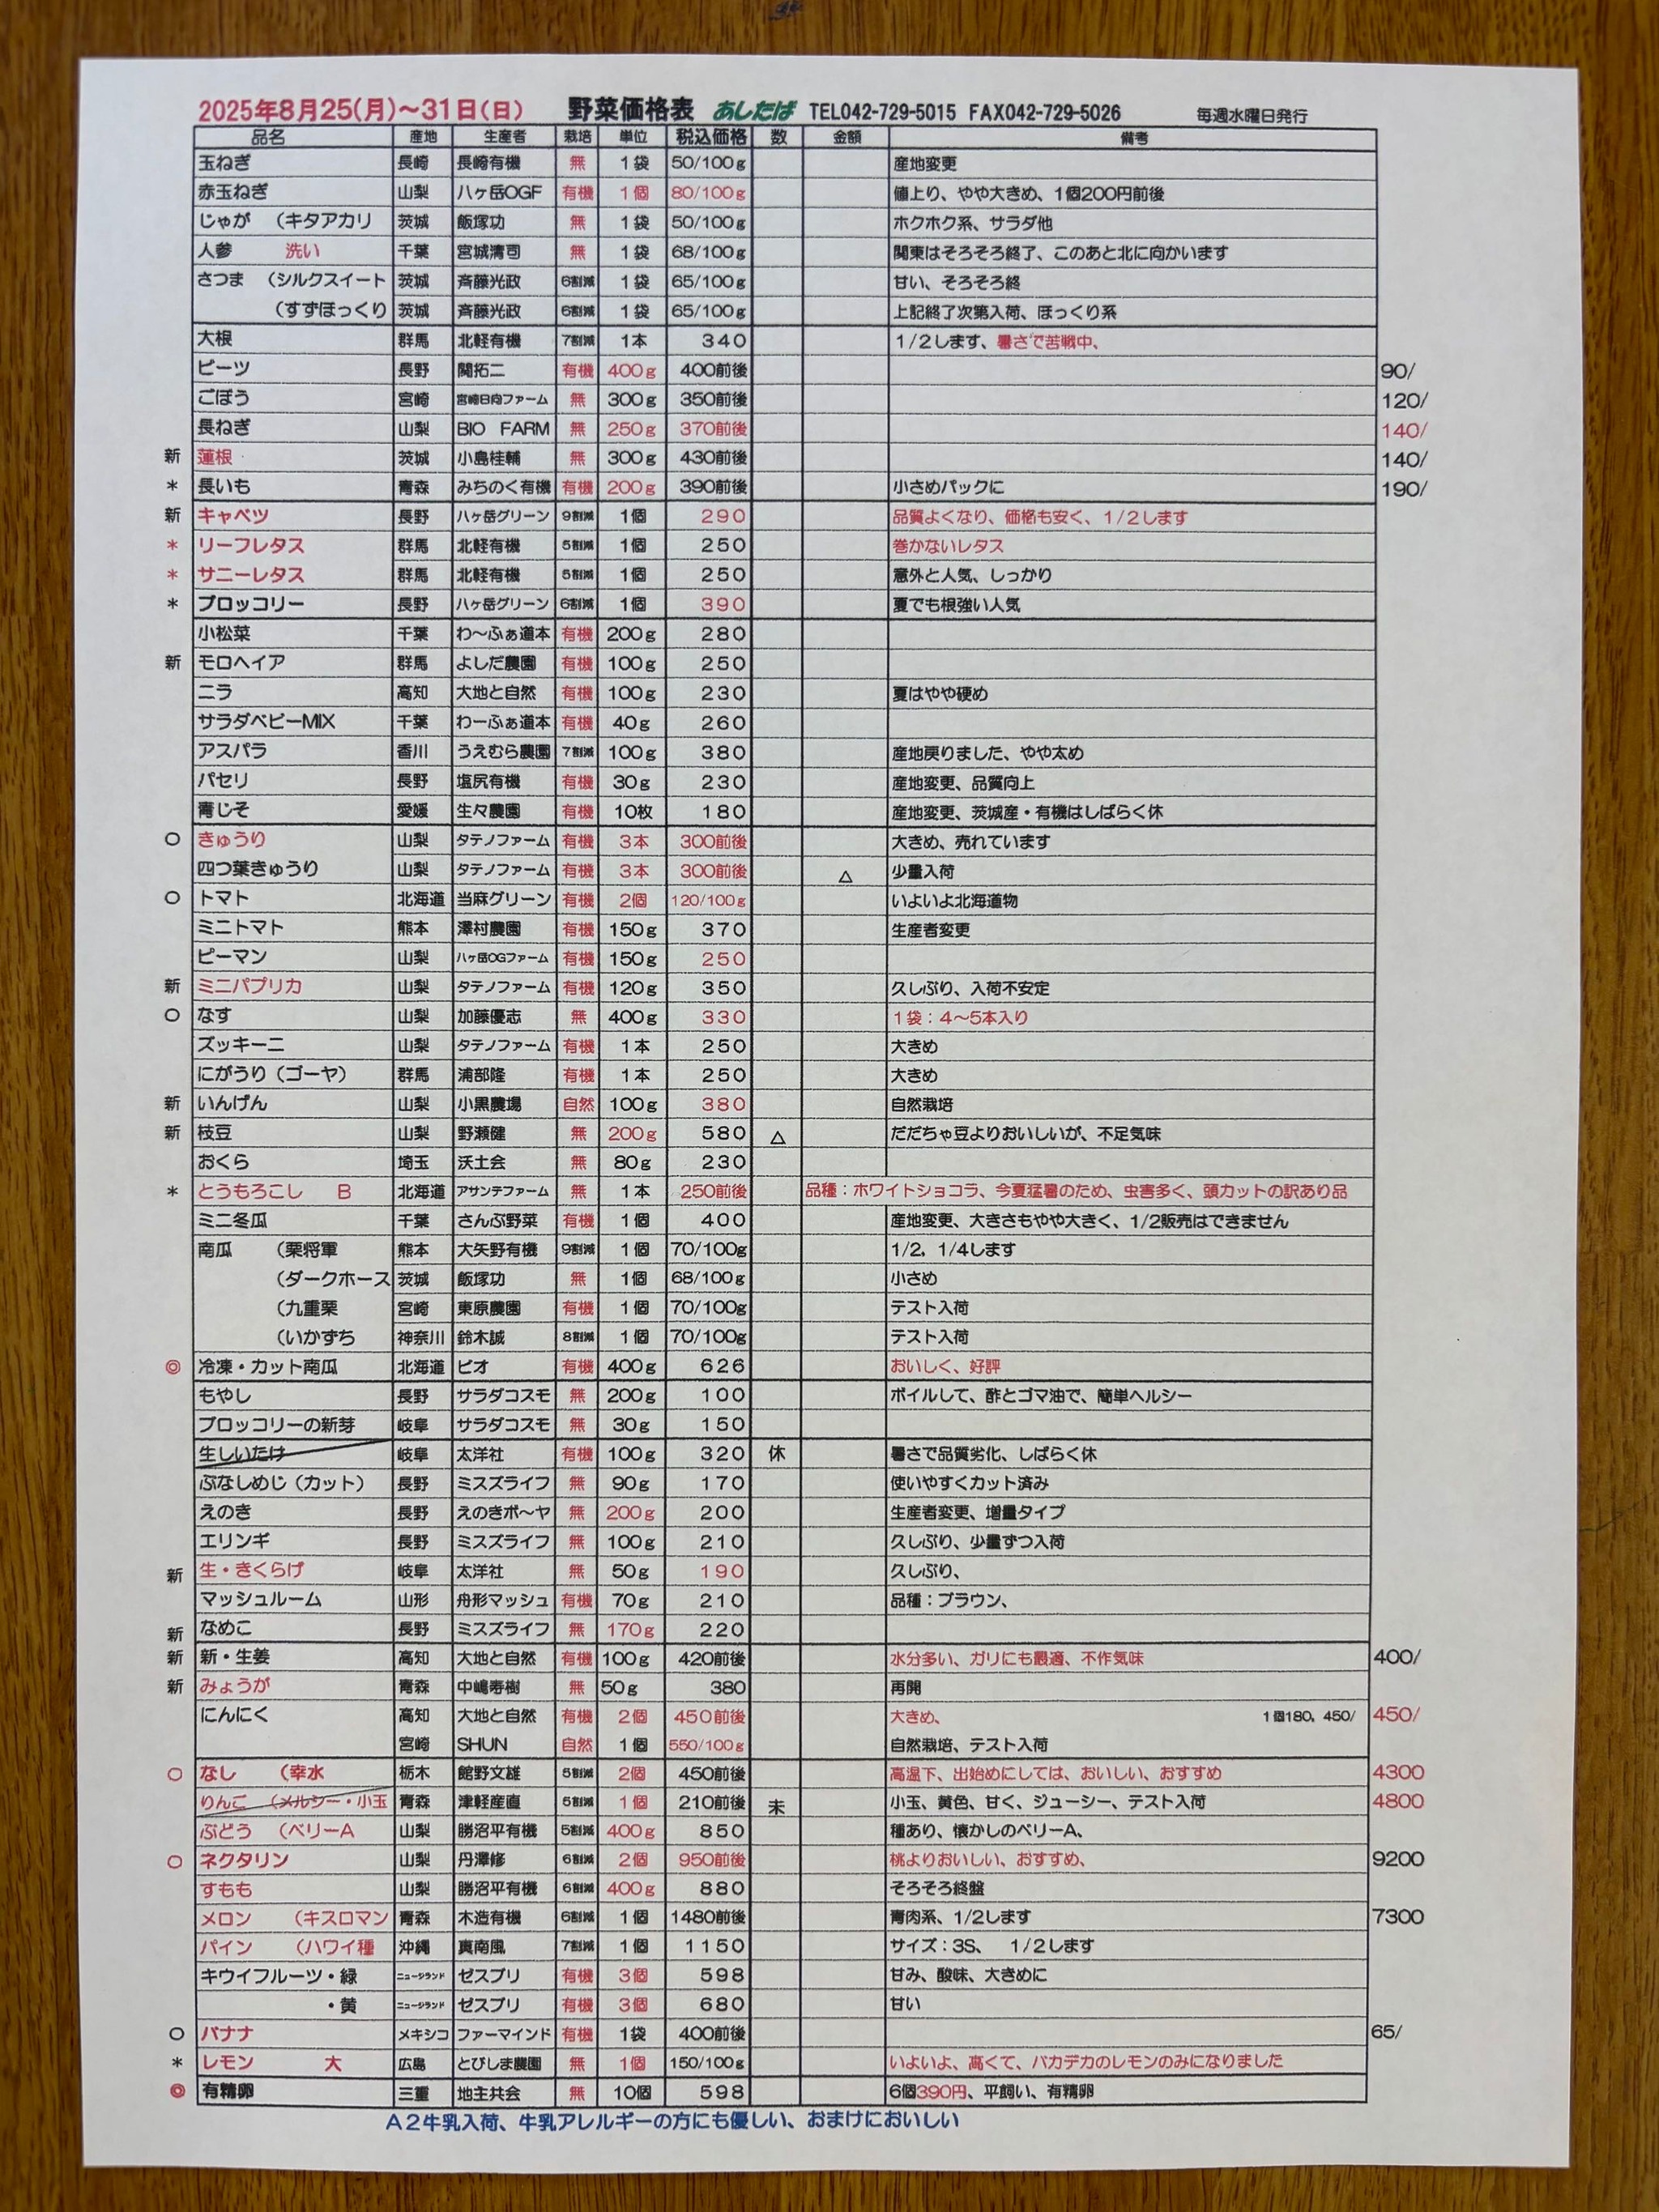 2025年8月25(月)～31日(日) 野菜価格表 あしたば TEL042-729-5015 FAX042-729-5026 毎週水曜日発行
品名 産地 生産者 栽培 単位 税込価格 数 金額 備考
玉ねぎ 長崎 長崎有機 無 1袋 50/100g 産地変更
赤玉ねぎ 山梨 八ヶ岳OGF 有機 1個 80/100g 値上り、やや大きめ、1個200円前後
じゃが （キタアカリ 茨城 飯塚功 無 1袋 50/100g ホクホク系、サラダ他
人参 洗い 千葉 宮城清司 無 1袋 68/100g 関東はそろそろ終了、このあと北に向かいます
さつま （シルクスイート 茨城 斉藤光政 6割減 1袋 65/100g 甘い、そろそろ終
（すずほっくり 茨城 斉藤光政 6割減 1袋 65/100g 上記終了次第入荷、ほっくり系
大根 群馬 北軽有機 7割減 1本 340 1/2します、暑さで苦戦中、
ビーツ 長野 関拓二 有機 400g 400前後 90/
ごぼう 宮崎 宮崎日向ファーム 無 300g 350前後 120/
長ねぎ 山梨 BIO FARM 無 250g 370前後 140/
新 蓮根 茨城 小島桂輔 無 300g 430前後 140/
* 長いも 青森 みちのく有機 有機 200g 390前後 小さめパックに 190/
新 キャベツ 長野 八ヶ岳グリーン 9割減 1個 290 品質よくなり、価格も安く、1/2します
* リーフレタス 群馬 北軽有機 5割減 1個 250 巻かないレタス
* サニーレタス 群馬 北軽有機 5割減 1個 250 意外と人気、しっかり
* ブロッコリー 長野 八ヶ岳グリーン 6割減 1個 390 夏でも根強い人気
小松菜 千葉 わ～ふぁ道本 有機 200g 280
新 モロヘイア 群馬 よしだ農園 有機 100g 250
ニラ 高知 大地と自然 有機 100g 230 夏はやや硬め
サラダベビーMIX 千葉 わーふぁ道本 有機 40g 260
アスパラ 香川 うえむら農園 7割減 100g 380 産地戻りました、やや太め
パセリ 長野 塩尻有機 有機 30g 230 産地変更、品質向上
青じそ 愛媛 生々農園 有機 10枚 180 産地変更、茨城産・有機はしばらく休
○ きゅうり 山梨 タテノファーム 有機 3本 300前後 大きめ、売れています
四つ葉きゅうり 山梨 タテノファーム 有機 3本 300前後 △ 少量入荷
○ トマト 北海道 当麻グリーン 有機 2個 120/100g いよいよ北海道物
ミニトマト 熊本 澤村農園 有機 150g 370 生産者変更
ピーマン 山梨 八ヶ岳OGファーム 有機 150g 250
新 ミニパプリカ 山梨 タテノファーム 有機 120g 350 久しぶり、入荷不安定
○ なす 山梨 加藤優志 無 400g 330 1袋：4～5本入り
ズッキーニ 山梨 タテノファーム 有機 1本 250 大きめ
にがうり（ゴーヤ） 群馬 浦部隆 有機 1本 250 大きめ
新 いんげん 山梨 小黒農場 自然 100g 380 自然栽培
新 枝豆 山梨 野瀬健 無 200g 580 △ だだちゃ豆よりおいしいが、不足気味
おくら 埼玉 沃土会 無 80g 230
* とうもろこし B 北海道 アサンテファーム 無 1本 250前後 品種：ホワイトショコラ、今夏猛暑のため、虫害多く、頭カットの訳あり品
ミニ冬瓜 千葉 さんぶ野菜 有機 1個 400 産地変更、大きさもやや大きく、1/2販売はできません
南瓜 （栗将軍 熊本 大矢野有機 9割減 1個 70/100g 1/2，1/4します
（ダークホース 茨城 飯塚功 無 1個 68/100g 小さめ
（九重栗 宮崎 東原農園 有機 1個 70/100g テスト入荷
（いかずち 神奈川 鈴木誠 8割減 1個 70/100g テスト入荷
◎ 冷凍・カット南瓜 北海道 ビオ 有機 400g 626 おいしく、好評
もやし 長野 サラダコスモ 無 200g 100 ボイルして、酢とゴマ油で、簡単ヘルシー
ブロッコリーの新芽 岐阜 サラダコスモ 無 30g 150
生しいたけ 岐阜 太洋社 有機 100g 320 休 暑さで品質劣化、しばらく休
ぶなしめじ（カット） 長野 ミスズライフ 無 90g 170 使いやすくカット済み
えのき 長野 えのきボ～ヤ 無 200g 200 生産者変更、増量タイプ
エリンギ 長野 ミスズライフ 無 100g 210 久しぶり、少量ずつ入荷
新 生・きくらげ 岐阜 太洋社 無 50g 190 久しぶり、
マッシュルーム 山形 舟形マッシュ 有機 70g 210 品種：ブラウン、
新 なめこ 長野 ミスズライフ 無 170g 220
新 新・生姜 高知 大地と自然 有機 100g 420前後 水分多い、ガリにも最適、不作気味 400/
新 みょうが 青森 中嶋寿樹 無 50g 380 再開
にんにく 高知 大地と自然 有機 2個 450前後 大きめ、 1個180，450/ 450/
宮崎 SHUN 自然 1個 550/100g 自然栽培、テスト入荷
○ なし （幸水 栃木 館野文雄 5割減 2個 450前後 高温下、出始めにしては、おいしい、おすすめ 4300
りんご （メルシー・小玉 青森 津軽産直 5割減 1個 210前後 未 小玉、黄色、甘く、ジューシー、テスト入荷 4800
ぶどう （ベリーA 山梨 勝沼平有機 5割減 400g 850 種あり、懐かしのベリーA、
○ ネクタリン 山梨 丹澤修 6割減 2個 950前後 桃よりおいしい、おすすめ、 9200
すもも 山梨 勝沼平有機 6割減 400g 880 そろそろ終盤
メロン （キスロマン 青森 木造有機 6割減 1個 1480前後 青肉系、1/2します 7300
パイン （ハワイ種 沖縄 真南風 7割減 1個 1150 サイズ：3S、 1/2します
キウイフルーツ・緑 ニュージランド ゼスプリ 有機 3個 598 甘み、酸味、大きめに
・黄 ニュージランド ゼスプリ 有機 3個 680 甘い
○ バナナ メキシコ ファーマインド 有機 1袋 400前後 65/
* レモン 大 広島 とびしま農園 無 1個 150/100g いよいよ、高くて、バカデカのレモンのみになりました
◎ 有精卵 三重 地主共会 無 10個 598 6個390円、平飼い、有精卵
A2牛乳入荷、牛乳アレルギーの方にも優しい、おまけにおいしい